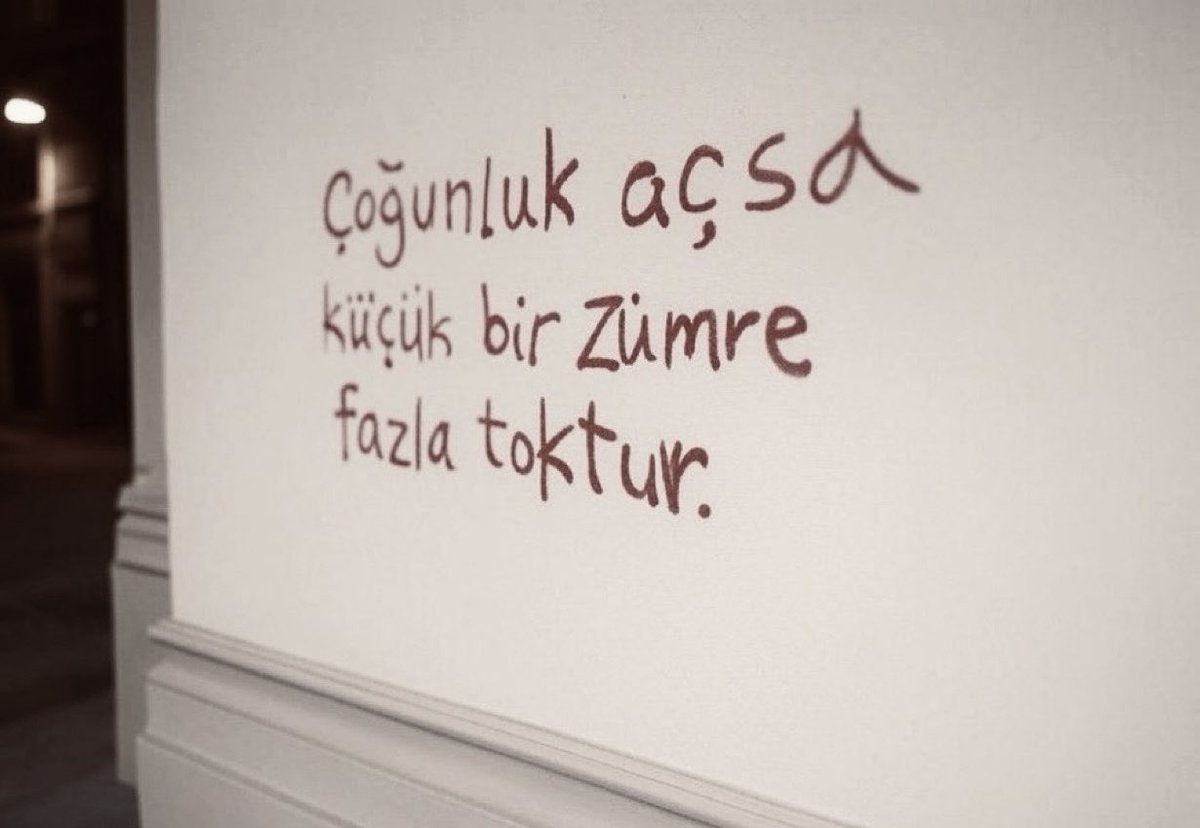 Çoğunluk açsa
küçük bir zümre
fazla toktur.